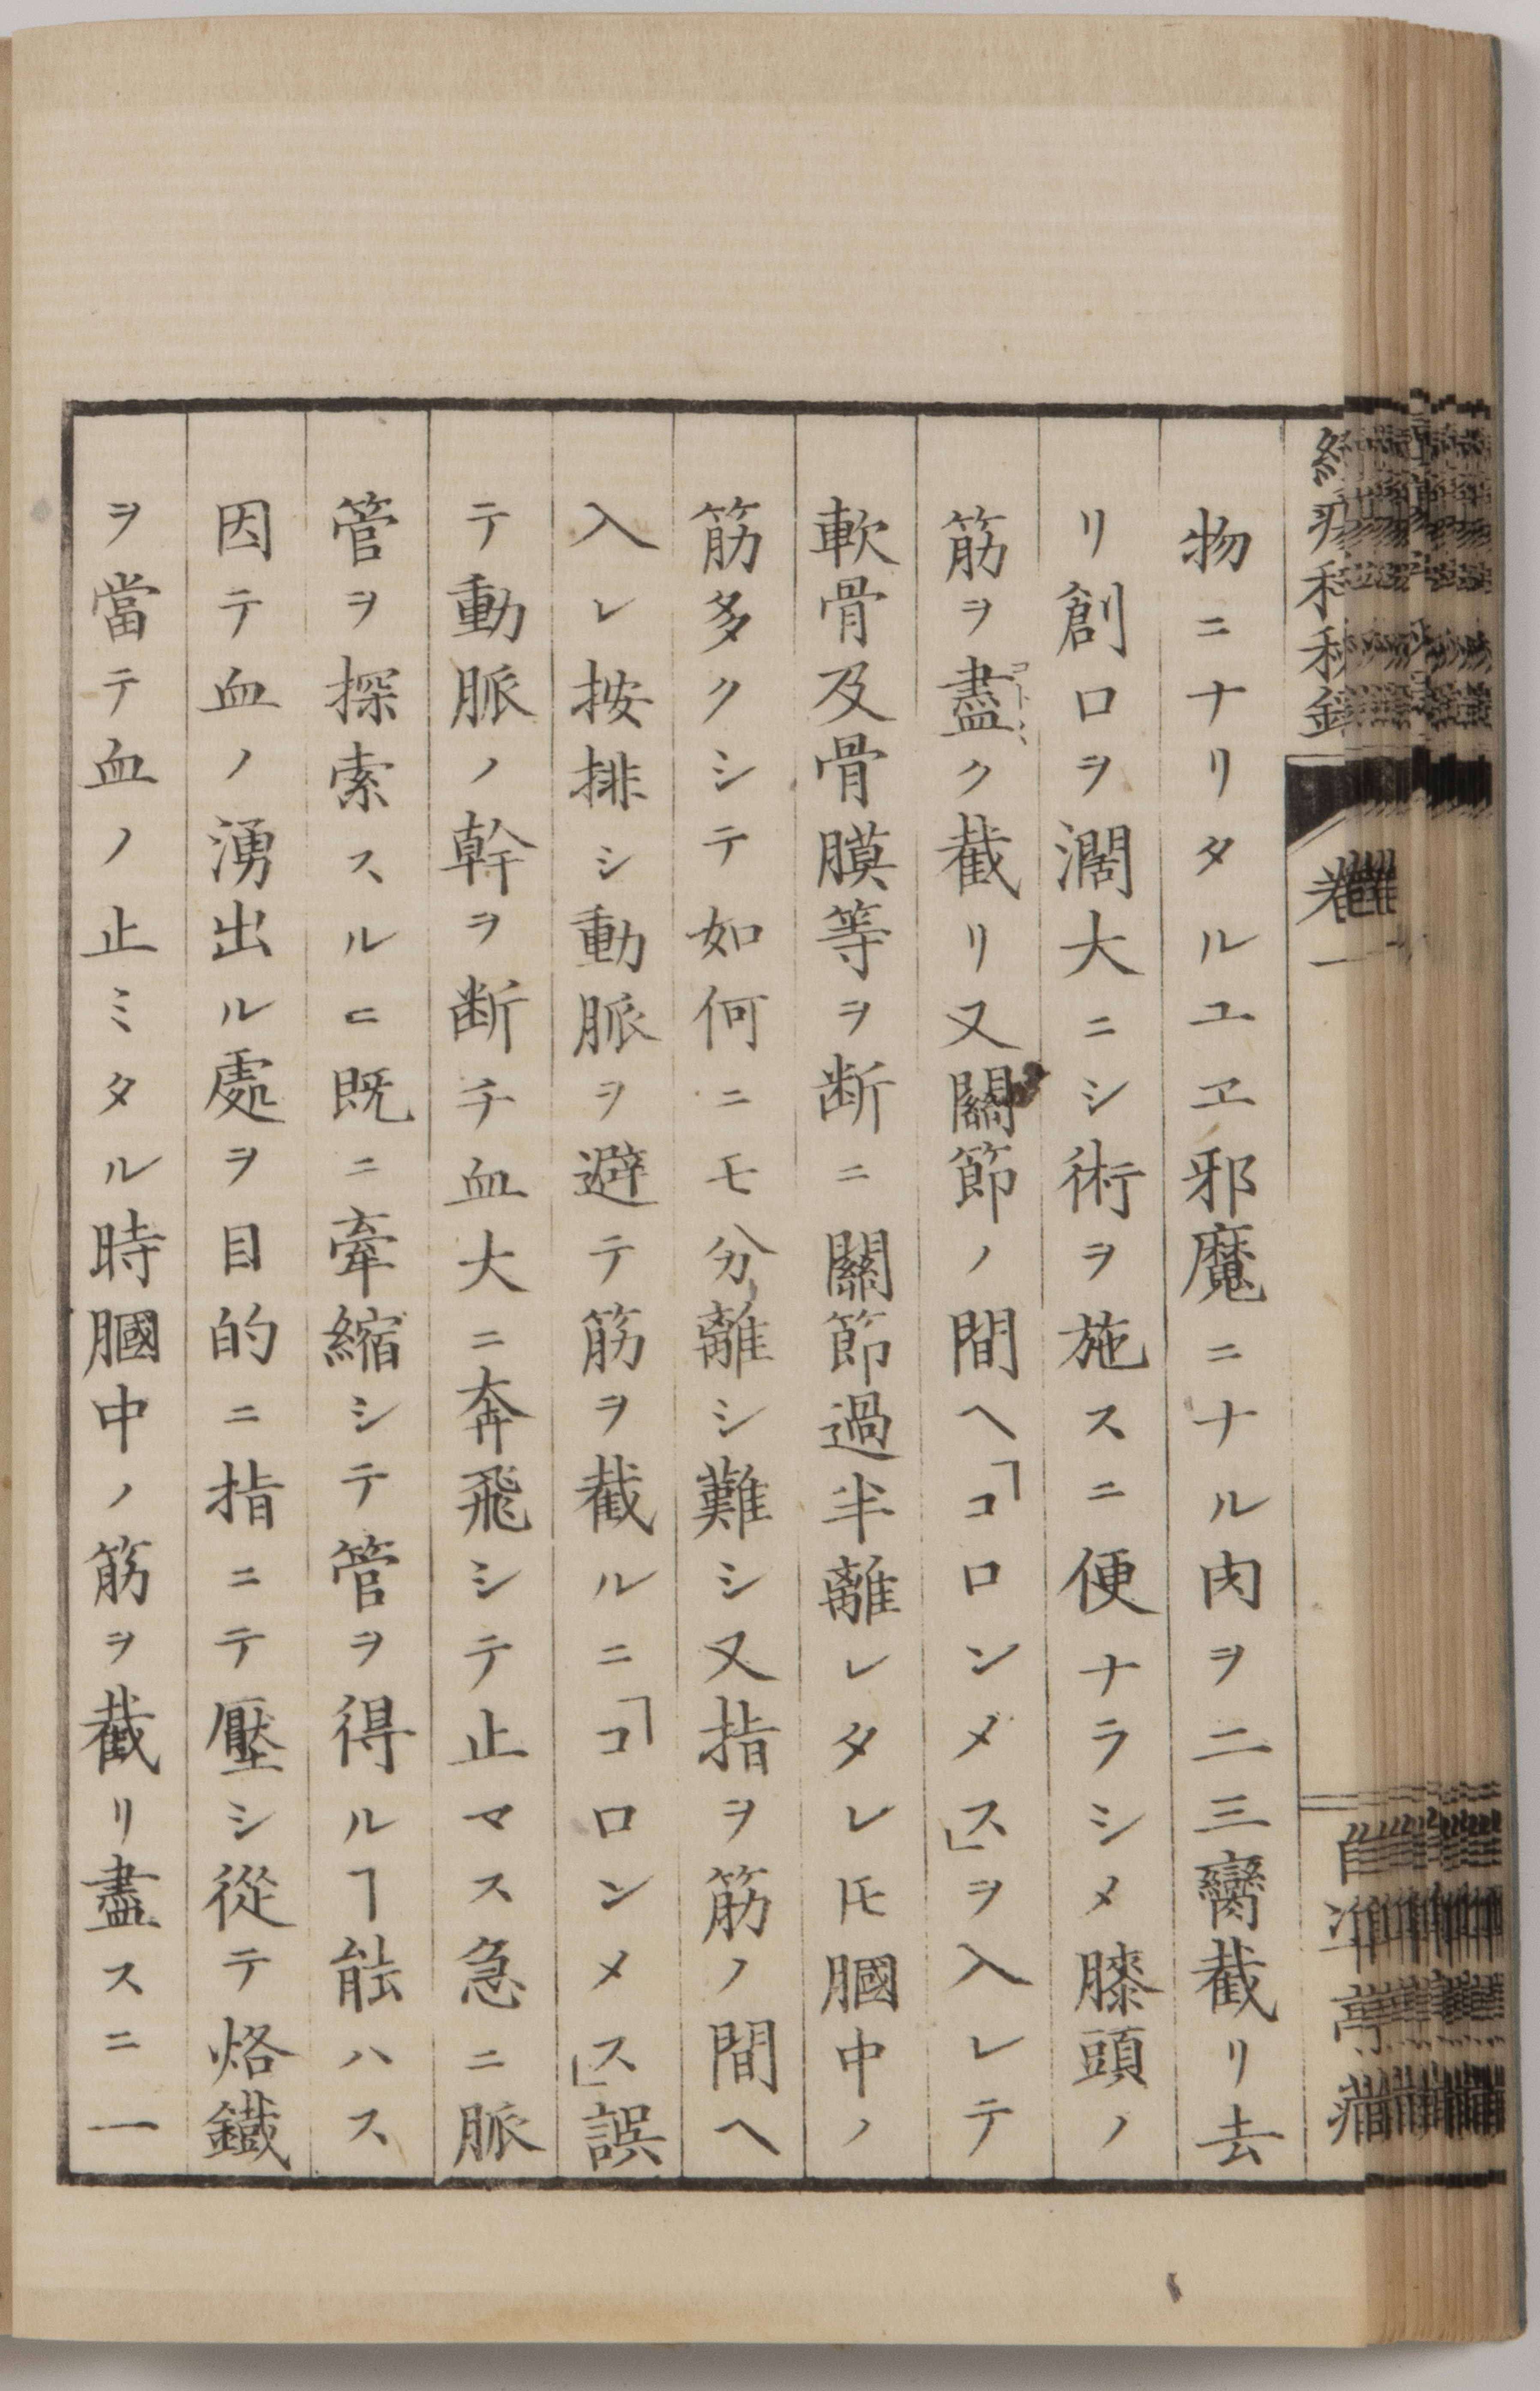 物ニナリタルユヱ邪魔ニナル肉ヲ二三臠截リ去
リ創口ヲ濶大ニシ術ヲ施スニ便ナラシメ膝頭ノ
筋ヲ盡ク截リ又關節ノ間ヘ「コロンメス」ヲ入レテ
軟骨及骨膜等ヲ断ニ關節過半離レタレ𪜈膕中ノ
筋多クシテ如何ニモ分離シ難シ又指ヲ筋ノ間ヘ
入レ按排シ動脈ヲ避テ筋ヲ截ルニ「コロンメス」誤
テ動脈ノ幹ヲ断チ血大ニ奔飛シテ止マス急ニ脈
管ヲ探索スルニ既ニ牽縮シテ管ヲ得ルヿ能ハス
因テ血ノ湧出ル處ヲ目的ニ指ニテ壓シ從テ烙鐵
ヲ當テ血ノ止ミタル時膕中ノ筋ヲ截リ盡スニ一
卷一